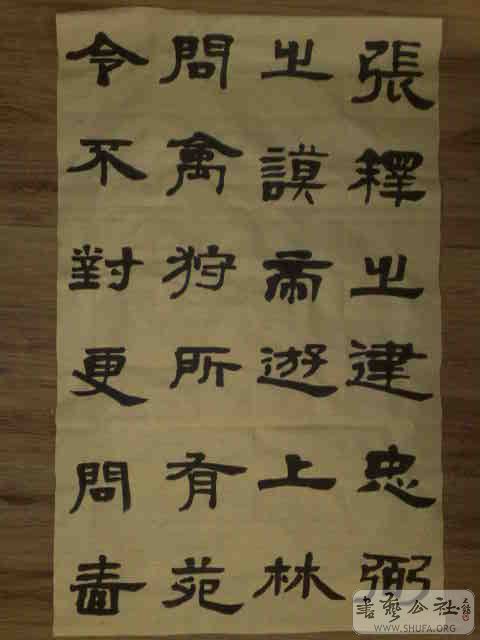 張釋之建忠弼
之謨帝遊上林
問禽狩所有苑
令不對更問嗇
書藝公社
WWW.SHUFA.ORG